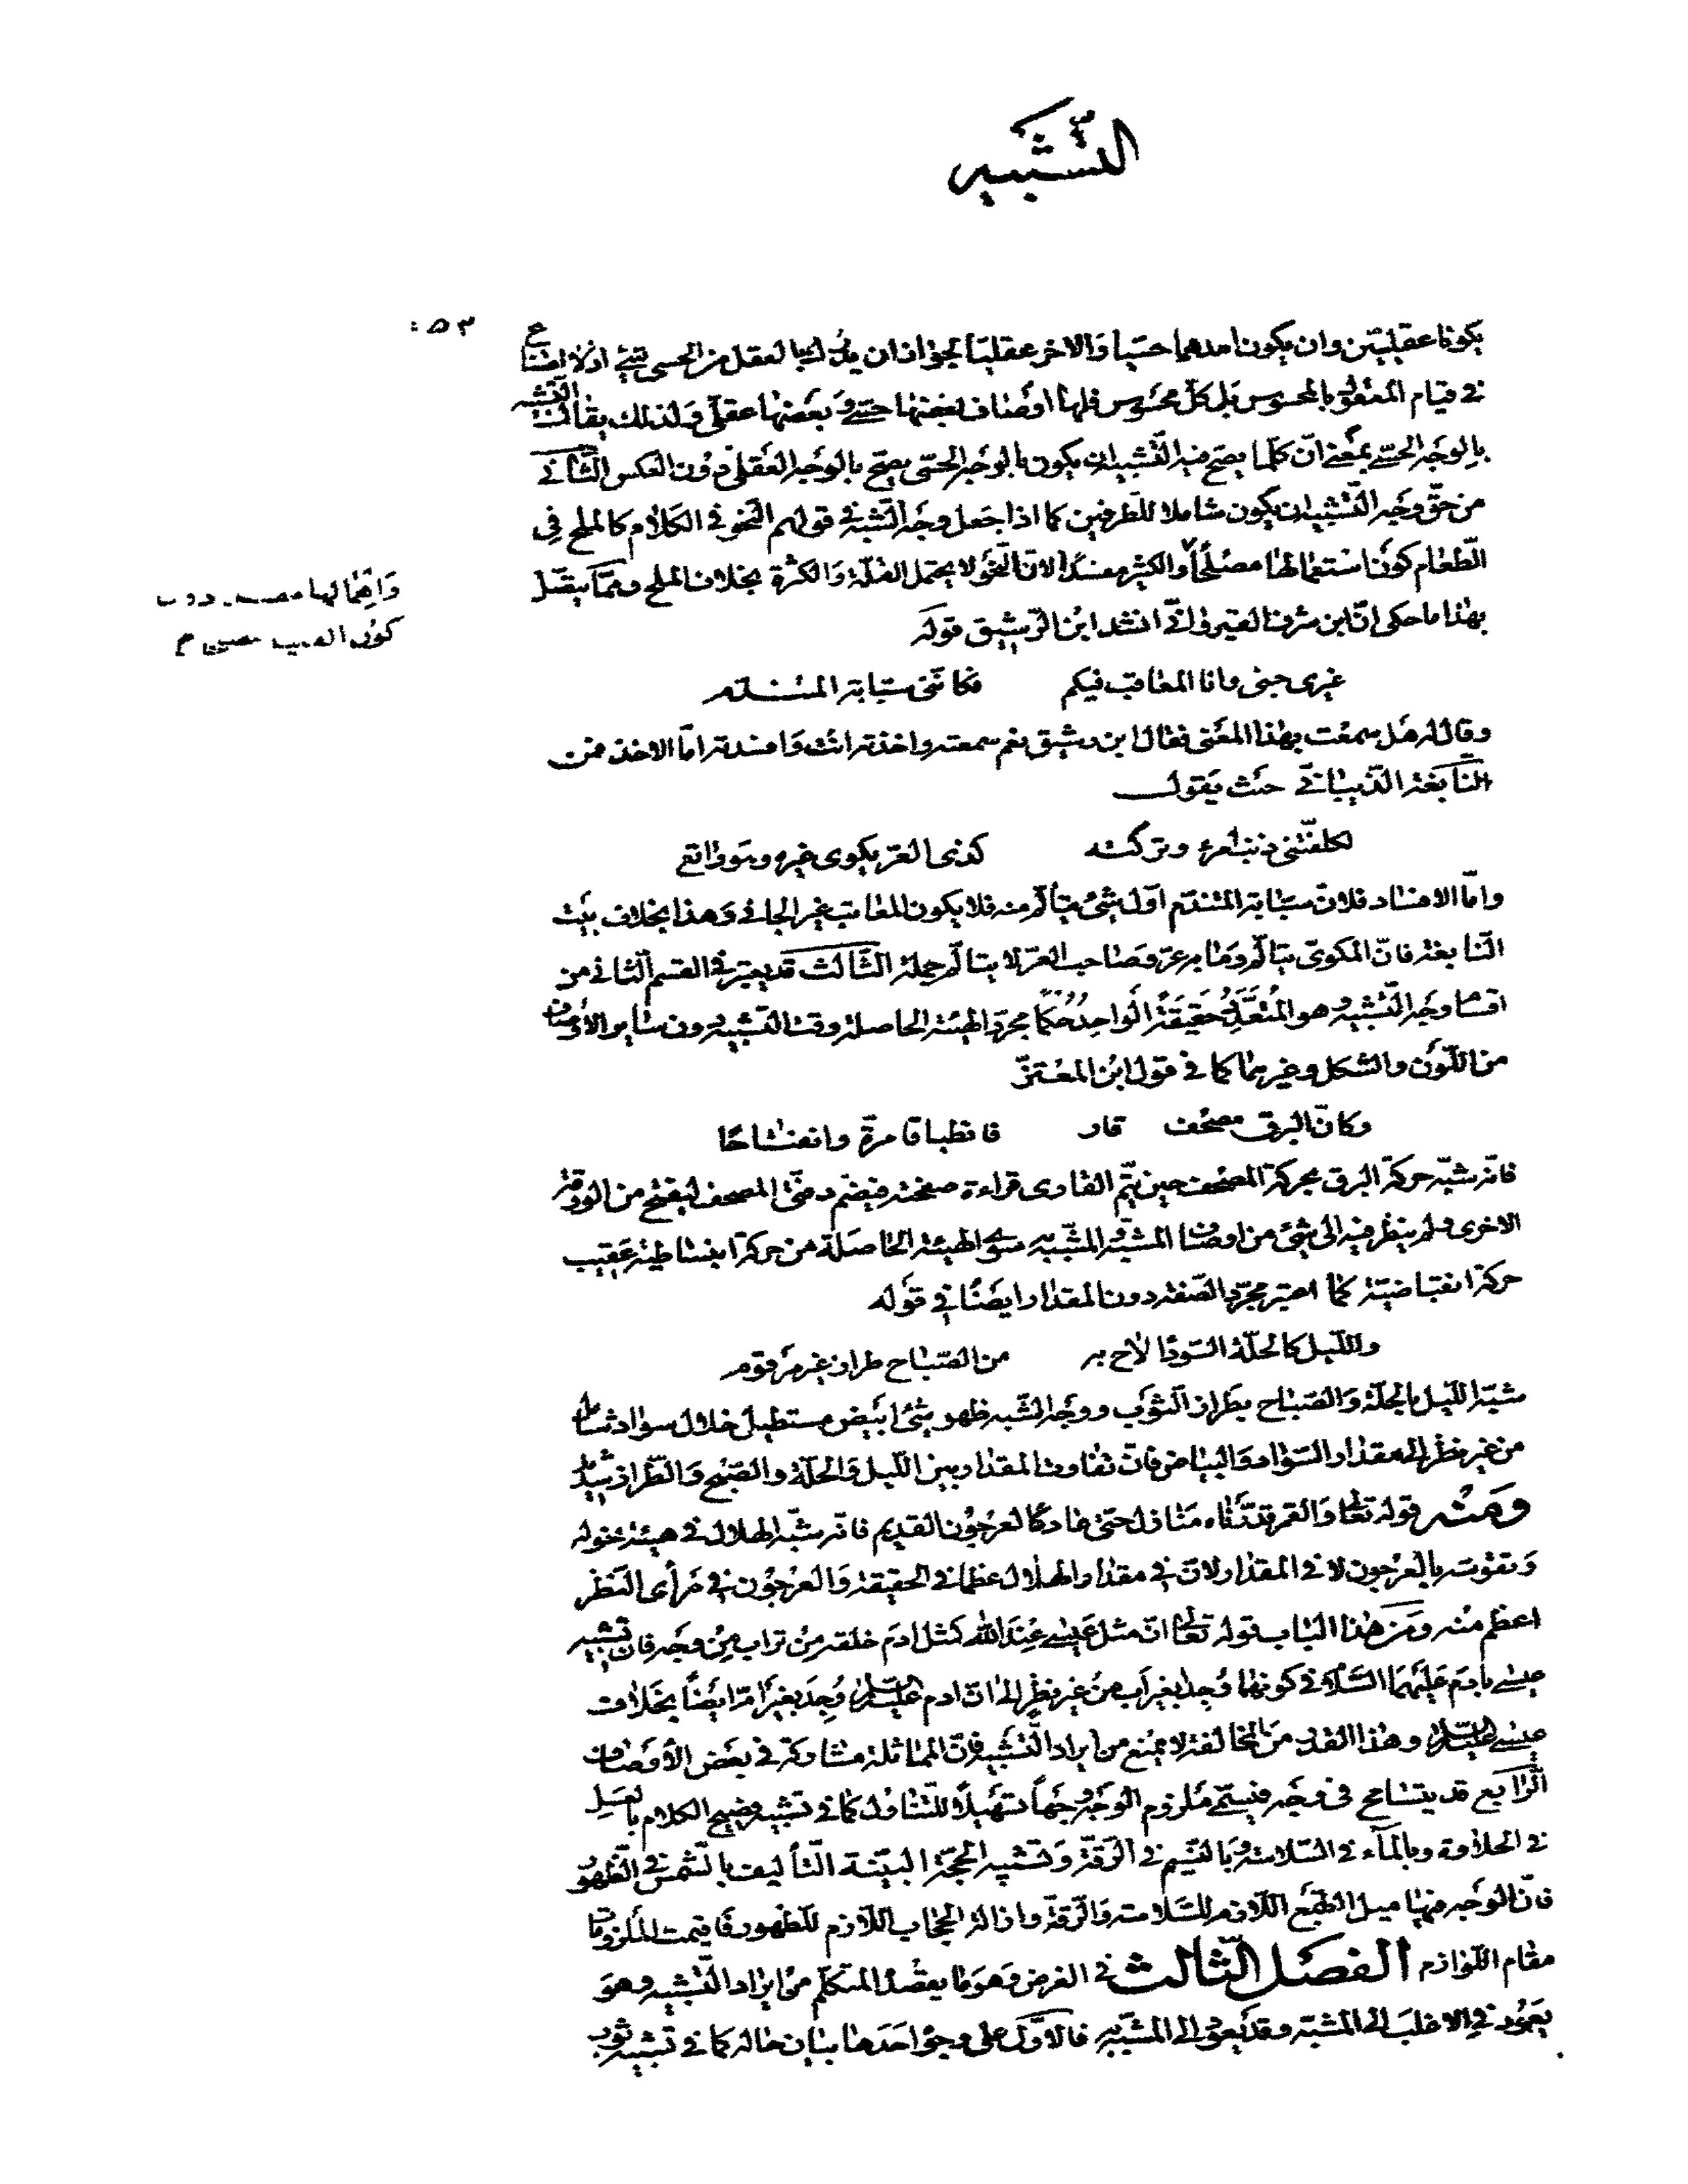 التشبيه
٥٣
يكونا عقليين وان يكون احدهما حسيا والاخر عقليا لجواز ان يدرك بالعقل من الحسى شئ اذ لا امتناع
فى قيام المعقول بالمحسوس بل كل محسوس فلها اوصاف بعضها حسى وبعضها عقلى ولذلك يقال التشبيه
بالوجه الحسى بمعنى ان كلما يصح فيه التشبيه ان يكون بالوجه الحسى يصح بالوجه العقلى دون العكس الثانى
من حق وجه التشبيه ان يكون شاملا للطرفين كما اذا جعل وجه التشبه فى قولهم النحو فى الكلام كالملح فى
الطعام كون استعمالها مصلحا والكثير مفسدا لان النحو لا يحتمل القلة والكثرة بخلاف الملح ومما يتصل
واهمالها
كون
بهذا ما حكى ان ابن شرف القيروانى انشد ابن الرشيق قوله
غيرى جنى وانا المعاقب فيكم فكاننى سبابة المتندم
وقال له هل سمعت بهذا المعنى فقال ابن رشيق نعم سمعته واخذته انت وافسدته اما الاخذ فمن
النابغة الذبيانى حيث يقول
لكلفتنى ذنب امرء وتركته كذى العر يكوى غيره وهو راتع
واما الافساد فلان سبابة المتندم اول شئ يتألم منه فلا يكون المعاقب غير الجانى وهذا بخلاف بيت
النابغة فان المكوى يتألم وما به عر وصاحب العر لا يتألم جملة الثالث قد يعتبر فى القسم الثانى من
اقسام وجه التشبيه وهو المتعدد حقيقة الواحد حكما مجرد الهيئة الحاصلة وقت التشبيه دون سائر الاوصاف
من اللون والشكل وغيرهما كما فى قول ابن المعتز
وكان البرق مصحف قار فانطباقا مرة وانفتاحا
فانه شبه حركة البرق بحركة المصحف حين يتم القارى قراءة صفحته فيضم دفتى المصحف ليفتح من الورقة
الاخرى ولم ينظر فيه الى شئ من اوصاف المشبه والمشبه به سوى الهيئة الحاصلة من حركة انبساطية عقيب
حركة انقباضية كما اعتبر مجرد الصفة دون المقدار ايضا فى قوله
والليل كالحلة السودا لاح به من الصباح طراز غير مرقوم
شبه الليل بالحلة والصباح بطراز الثوب ووجه الشبه ظهور شئ ابيض مستطيل خلال سواد شامل
من غير نظر الى مقدار السواد والبياض فان تفاوت المقدار بين الليل والحلة والصبح والطراز شديد
ومنه قوله تعالى والقمر قدرناه منازل حتى عاد كالعرجون القديم فانه شبه الهلال فى هيئة نحوله
وتقوسه بالعرجون لا فى المقدار لان فى مقدار الهلال عظما فى الحقيقة والعرجون فى مرأى النظر
اعظم منه ومن هذا الباب قوله تعالى ان مثل عيسى عند الله كمثل ادم خلقه من تراب من وجه فان تشبيه
عيسى بادم عليهما السلام فى كونهما وجدا بغير اب من غير نظر الى ان ادم عليه السلام وجد بغير ام ايضا بخلاف
عيسى عليه السلام وهذا القدر من المخالفة لا يمنع من ايراد التشبيه فان المماثلة مشاركة فى بعض الاوصاف
الرابع قد يتسامح فى وجه فيسمى ملزوم الوجه وجها تسهيلا للتناول كما فى تشبيه فصيح الكلام بالعسل
فى الحلاوة وبالماء فى السلاسة وبالنسيم فى الرقة وتشبيه الحجة البينة التأليف بالشمس فى الظهور
فان الوجه فيها ميل الطبع اللازم للسلاسة والرقة وازالة الحجاب اللازم للظهور فاقيمت الملزومات
مقام اللوازم الفصل الثالث فى الغرض وهو ما يقصد المتكلم من ايراد التشبيه وهو
يعود فى الاغلب الى المشبه وقد يعود الى المشبه به فالاول على وجوه احدها بيان حاله كما فى تشبيه ثوب